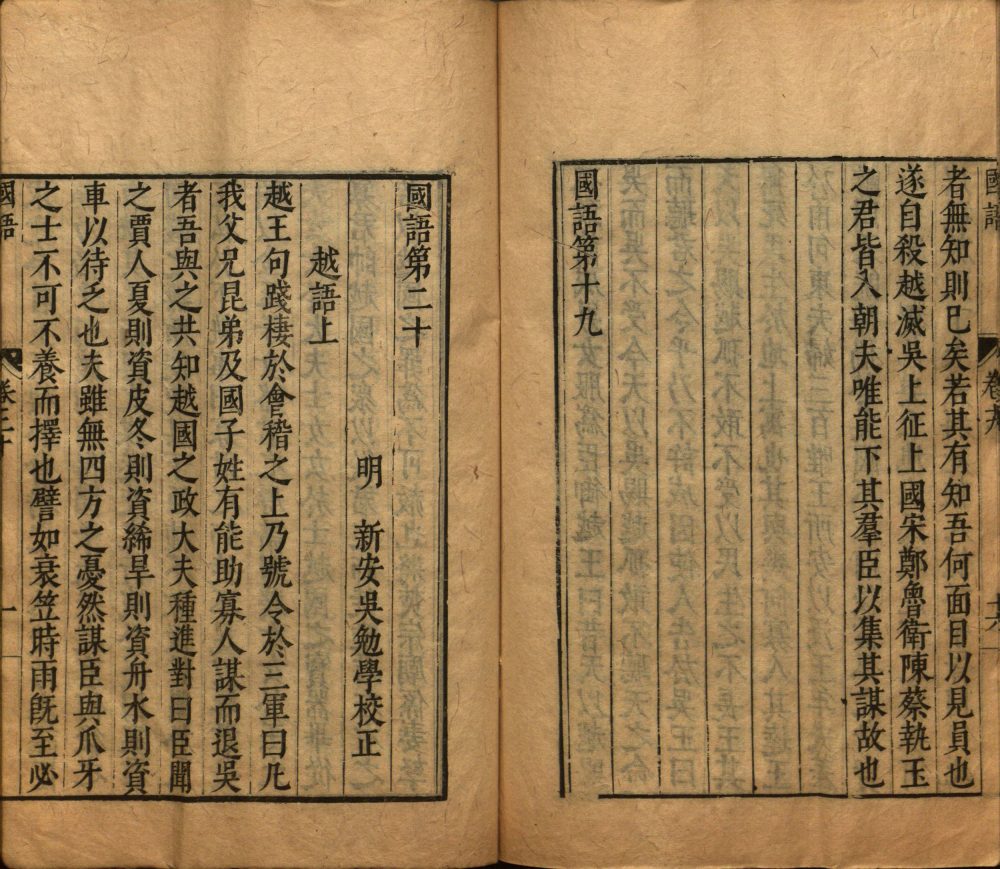 國語
卷十九
十六
者無知則已矣若其有知吾何面目以見員也
遂自殺越滅吳上征上國宋鄭魯衛陳蔡執玉
之君皆入朝夫唯能下其羣臣以集其謀故也
國語第十九
國語第二十
越語上
明 新安吳勉學校正
越王句踐棲於會稽之上乃號令於三軍曰凡
我父兄昆弟及國子姓有能助寡人謀而退吳
者吾與之共知越國之政大夫種進對曰臣聞
之賈人夏則資皮冬則資絺旱則資舟水則資
車以待乏也夫雖無四方之憂然謀臣與爪牙
之士不可不養而擇也譬如衰笠時雨既至必
國語
卷二十
一